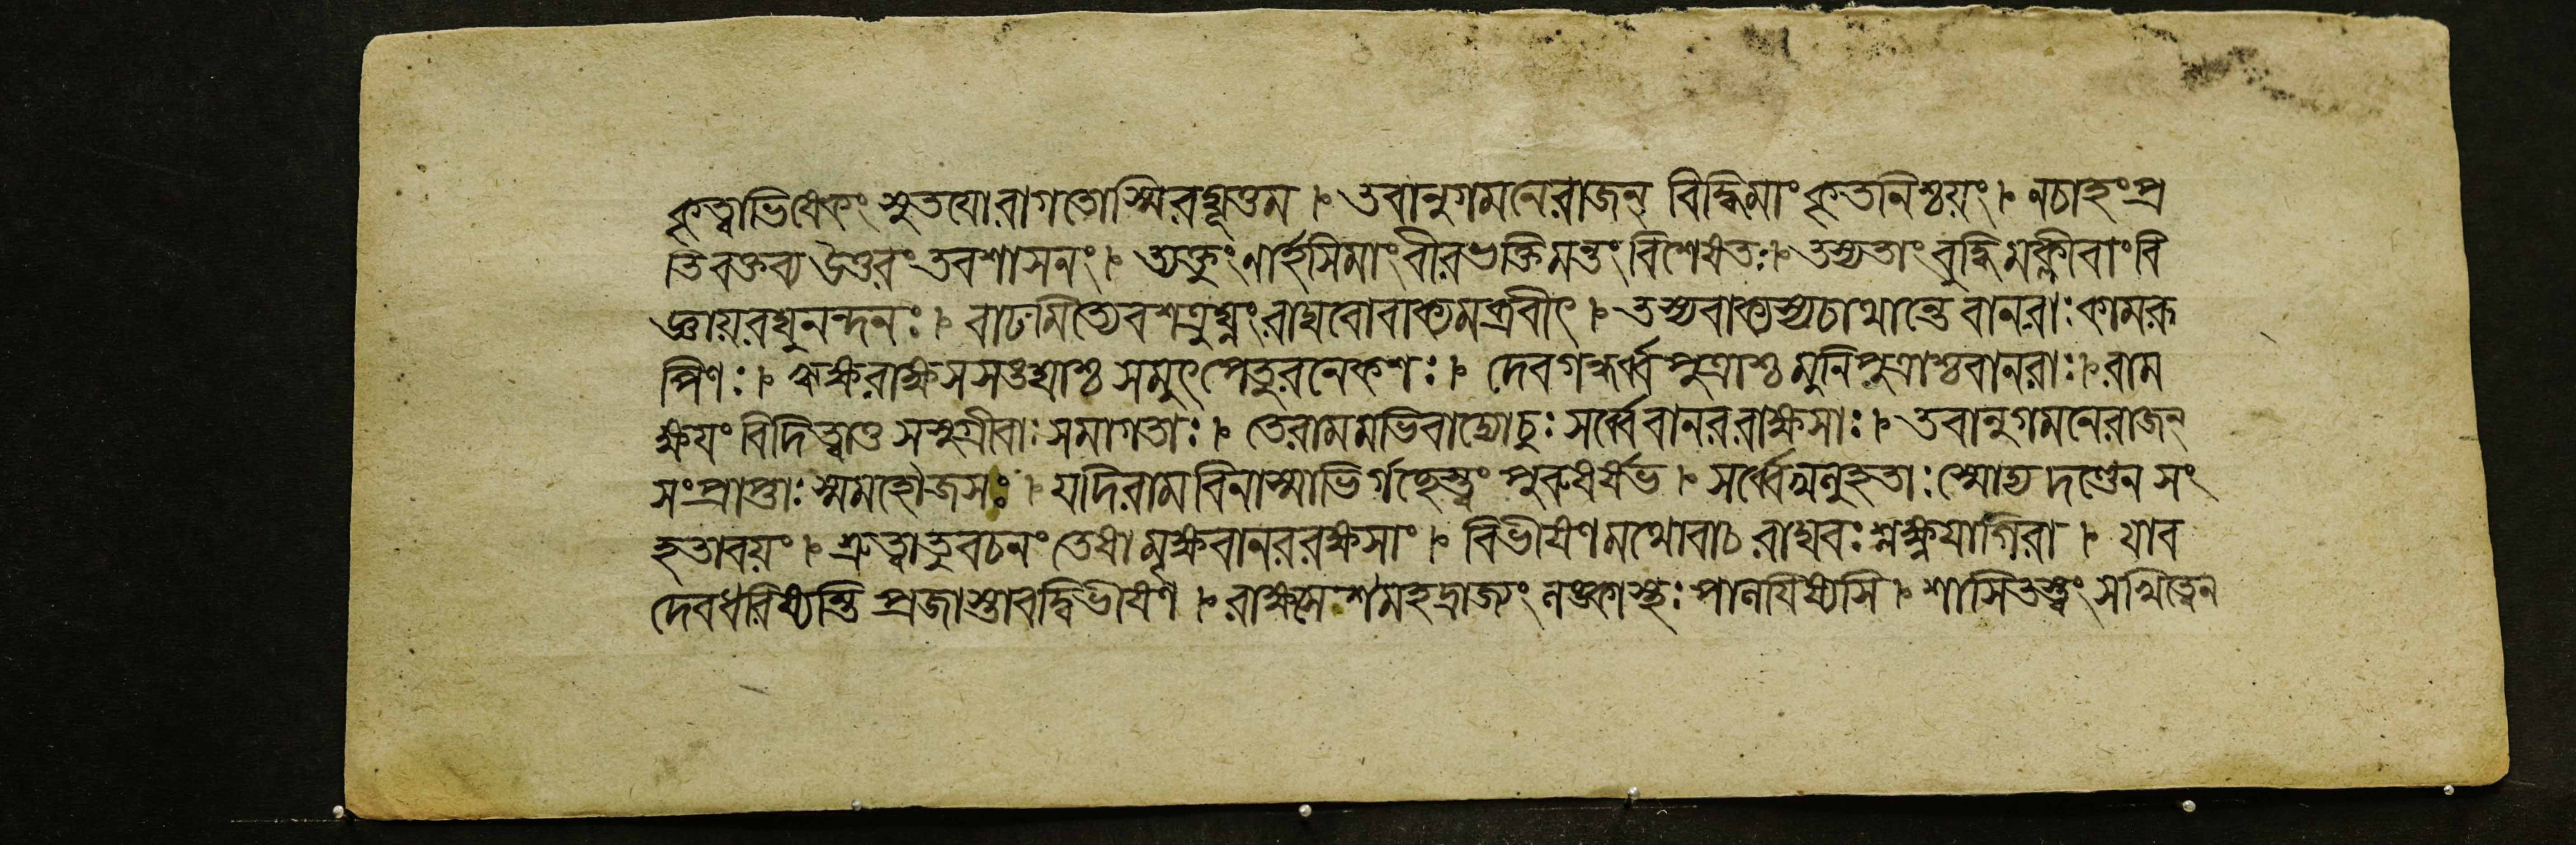 কৃত্বাভিষেকং সুতযোরাগতোস্মিরঘূত্তম । তবানুগমনেরাজন্ বিদ্ধিমাং কৃতনিশ্চয়ং । নচাহংপ্র
তিবক্তব্য উত্তরং তবশাসনং । ত্যক্তুংনার্হসিমাংবীরভক্তিমন্তংবিশেষতঃ । তস্যতাংবুদ্ধিমক্লীবাংবি
জ্ঞায়রঘুনন্দনঃ । বাঢমিত্যেবশত্রুঘ্নংরাঘবোবাক্যমব্রবীৎ । তস্যবাক্যস্যচাথান্তে বানরাঃকামরূ
পিণঃ । ঋক্ষরাক্ষসসঙ্ঘাশ্চ সমুৎপেতুরনেকশঃ । দেবগন্ধর্ব্বপুত্রাশ্চ মুনিপুত্রাশ্চবানরাঃ । রাম
ক্ষযংবিদিত্বাত্ত সসুগ্রীবাঃসমাগতাঃ । তেরামমভিবাদ্যোচুঃ সর্ব্বেবানররাক্ষসাঃ । তবানুগমনেরাজন্
সংপ্রাপ্তাঃস্মমহৌজসঃ । যদিরামবিনাস্মাভির্গচ্ছেস্ত্বং পুরুষর্ষভ । সর্ব্বেস্মনুহতাঃস্মোদ্য দণ্ডেন সং
হতাবয়ং । শ্রুত্বাতুবচনং তেষামৃক্ষবানররক্ষসাং । বিভীষণমথোবাচ রাঘবঃশ্লক্ষ্ণযাগিরা । যাব
দেবধরিষ্যন্তি প্রজাস্তাবদ্বিভীষণ । রাক্ষসেশমহদ্রাজ্যং লঙ্কাস্থঃপালযিষ্যসি । শাসিতস্ত্বং সখিত্বেন